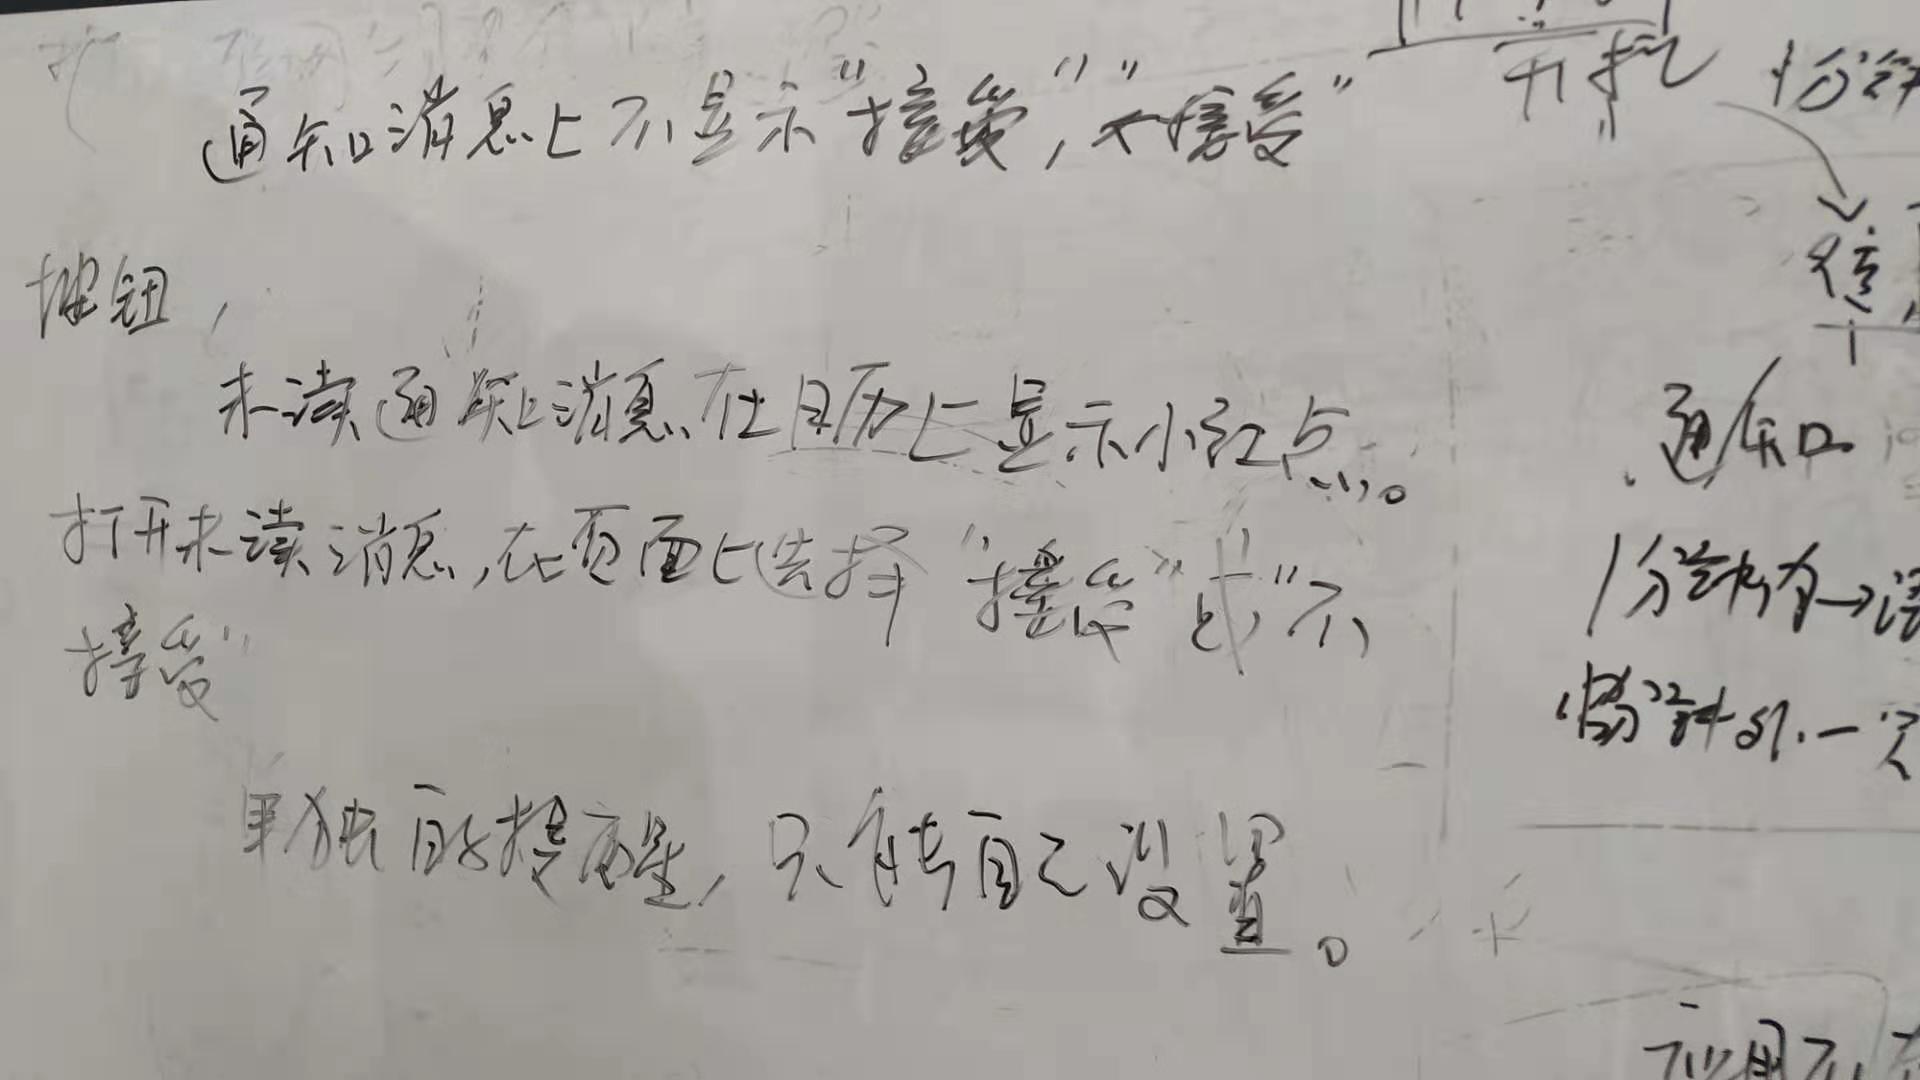 通知消息上不显示"接受","不接受"
按钮,
未读通知消息在日历上显示小红点。
打开未读消息,在页面上选择"接受"或"不
接受"
单独的提醒,只能自己设置。
开机
通知
1分钟内→
应用不